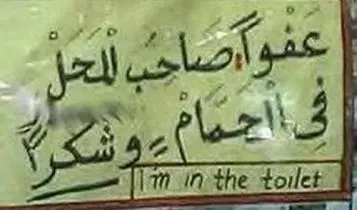 عَفْواً صَاحِبُ لْمَحَلْ
فِي الْحَمَامْ = وشكراً
I'm in the toilet